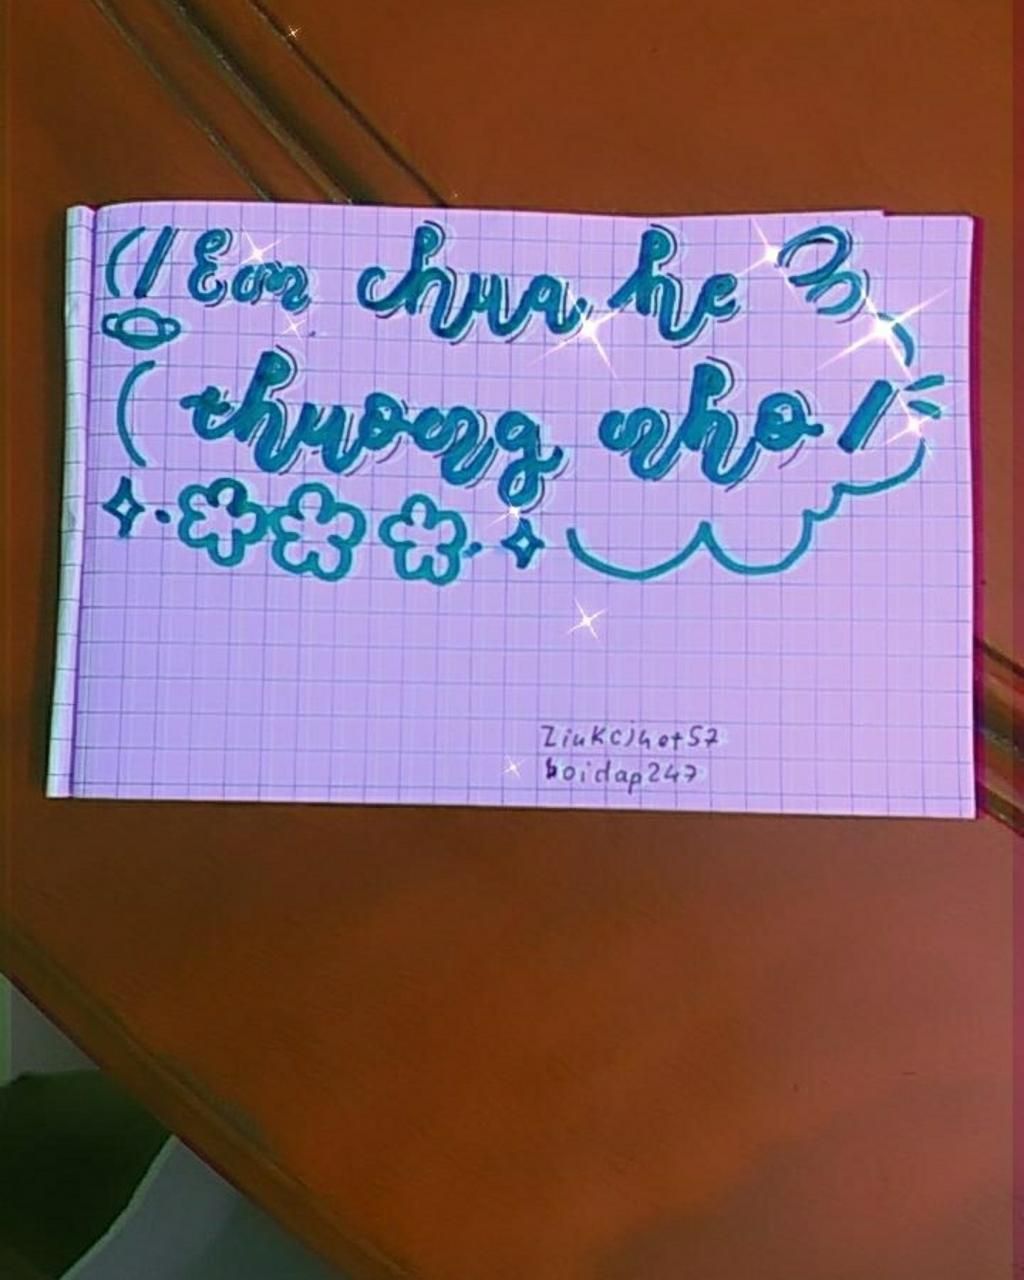 Em chua he
thuong nho
ZiuKcjhot57
boidap247